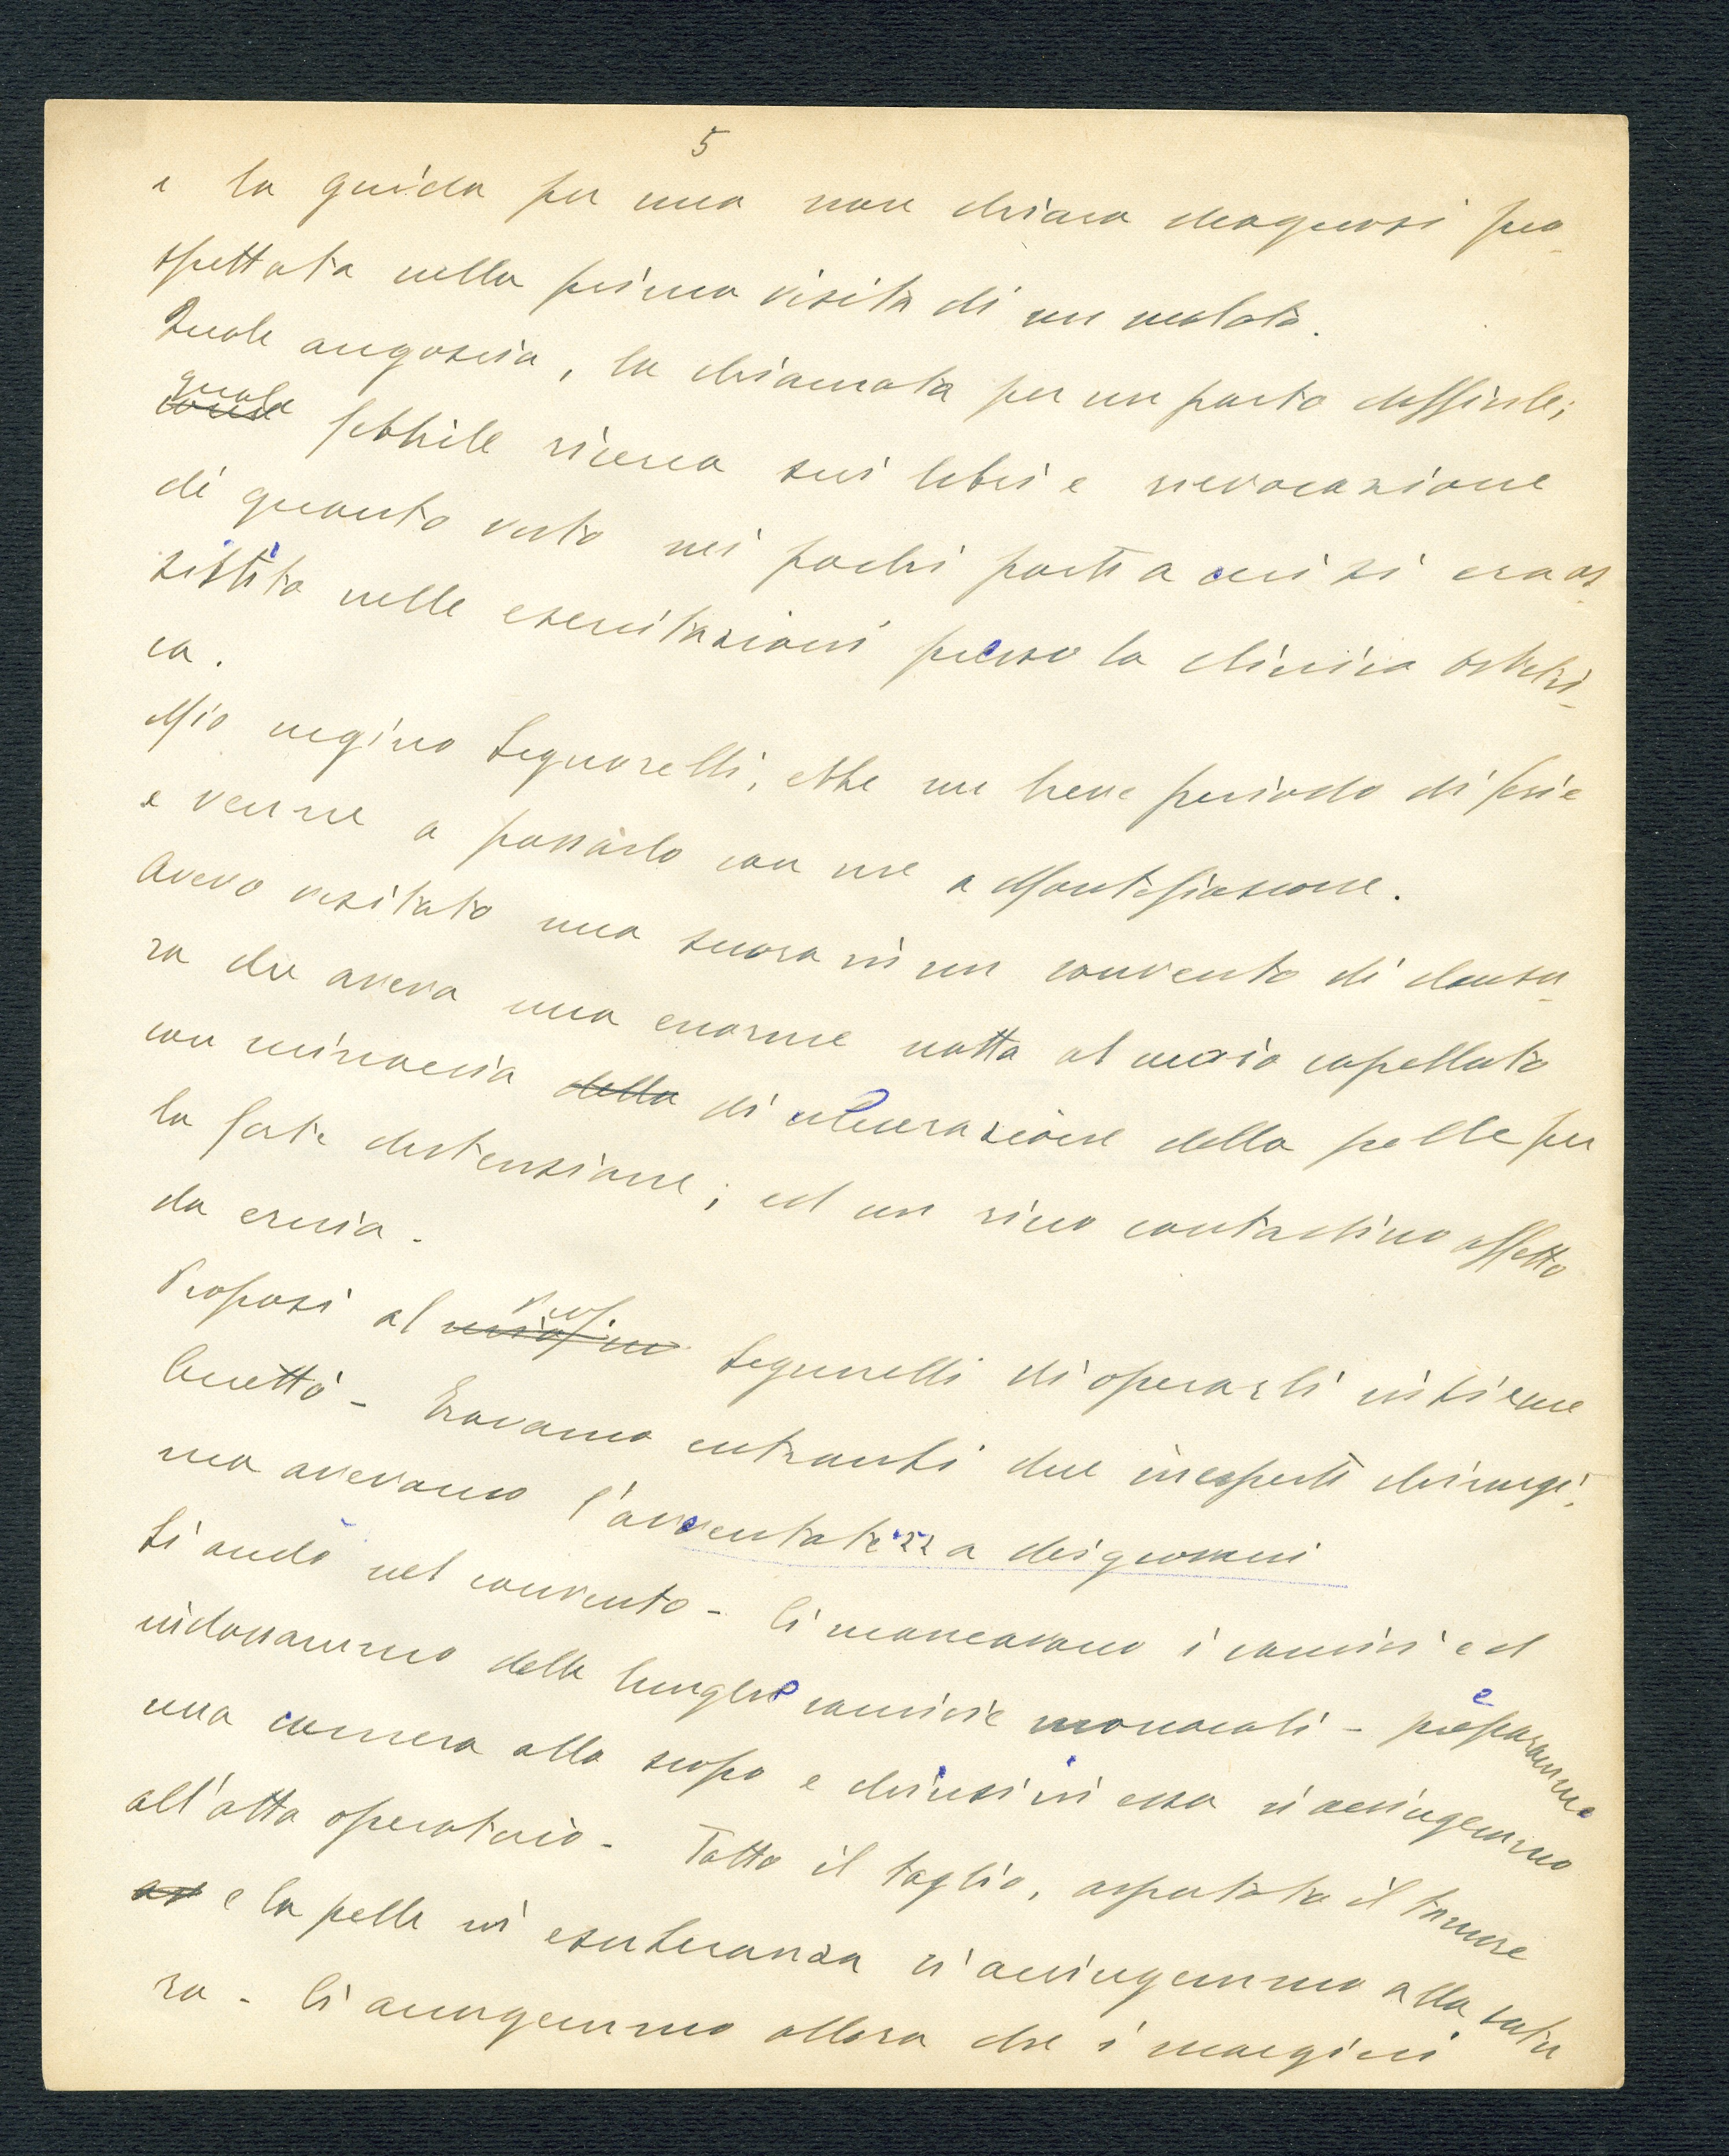 5
e la guida per una non chiara diagnosi pro-
spettata nella prima visita di un malato.
Quale angoscia, la chiamata per un parto difficile;
quale febbrile ricerca sui libri e rievocazione
di quanto visto nei pochi parti a cui si era as-
sistito nelle esercitazioni presso la clinica ostetri-
ca.
Mio cugino Signorelli, ebbe un breve periodo di ferie
e venne a passarlo con me a Montefiascone.
Avevo visitato una suora in un convento di clausu-
ra che aveva una enorme natta al cuoio capelluto
con minaccia della di ulcerazione della pelle per
la forte distensione; ed un ricco contadino affetto
da ernia.
Proposi al Prof Signorelli di operarli insieme
Accettò - Eravamo entrambi due inesperti chirurgi,
ma avevamo l'avventatezza dei giovani
Si andò nel convento - Ci mancavano i camici ed
indossammo delle lunghe camicie monacali - preparammo
una camera allo scopo e chiusi in essa ci accingemmo
all'atto operatorio - Fatto il taglio, asportato il tumore
as e la pelle in esuberanza ci accingemmo alla sutu
ra - Ci accorgemmo allora che i margini